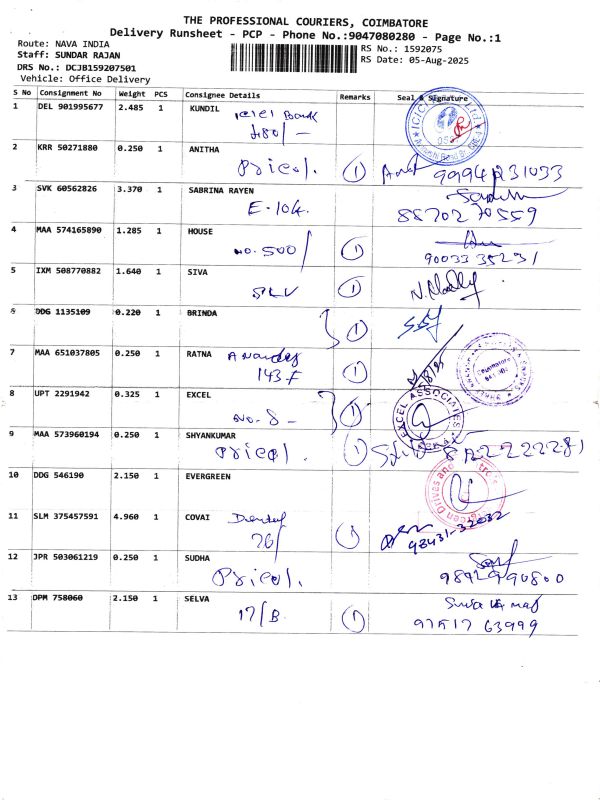 THE PROFESSIONAL COURIERS, COIMBATORE
Delivery Runsheet - PCP - Phone No.:9047080280 - Page No.:1
Route: NAVA INDIA
Staff: SUNDAR RAJAN
DRS No.: DCJB159207501
Vehicle: Office Delivery
RS No.: 1592075
RS Date: 05-Aug-2025
S No Consignment No Weight PCS Consignee Details Remarks Seal & Signature
1 DEL 901995677 2.485 1 KUNDIL
ICICI Bank
480/-
2 KRR 50271880 0.250 1 ANITHA
Pricol. 1 99942 31033
3 SVK 60562826 3.370 1 SABRINA RAYEN
E-104. 8870270559
4 MAA 574165890 1.285 1 HOUSE
NO. 500/ 1 90033 35231
5 IXM 508770882 1.640 1 SIVA
1
6 DDG 1135109 0.220 1 BRINDA
1
7 MAA 651037805 0.250 1 RATNA
143 F 1
8 UPT 2291942 0.325 1 EXCEL
NO. 8- 1 EXCEL ASSOCIATES
9 MAA 573960194 0.250 1 SHYANKUMAR
Pricol. 1
10 DDG 546190 2.150 1 EVERGREEN
11 SLM 375457591 4.960 1 COVAI
76/ 1 98431-32032
12 JPR 503061219 0.250 1 SUDHA
Pricol. 9842990800
13 DPM 758060 2.150 1 SELVA
17/B. 1 97517 63999